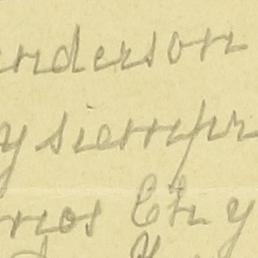 nderson
y siempr
mos Eh y